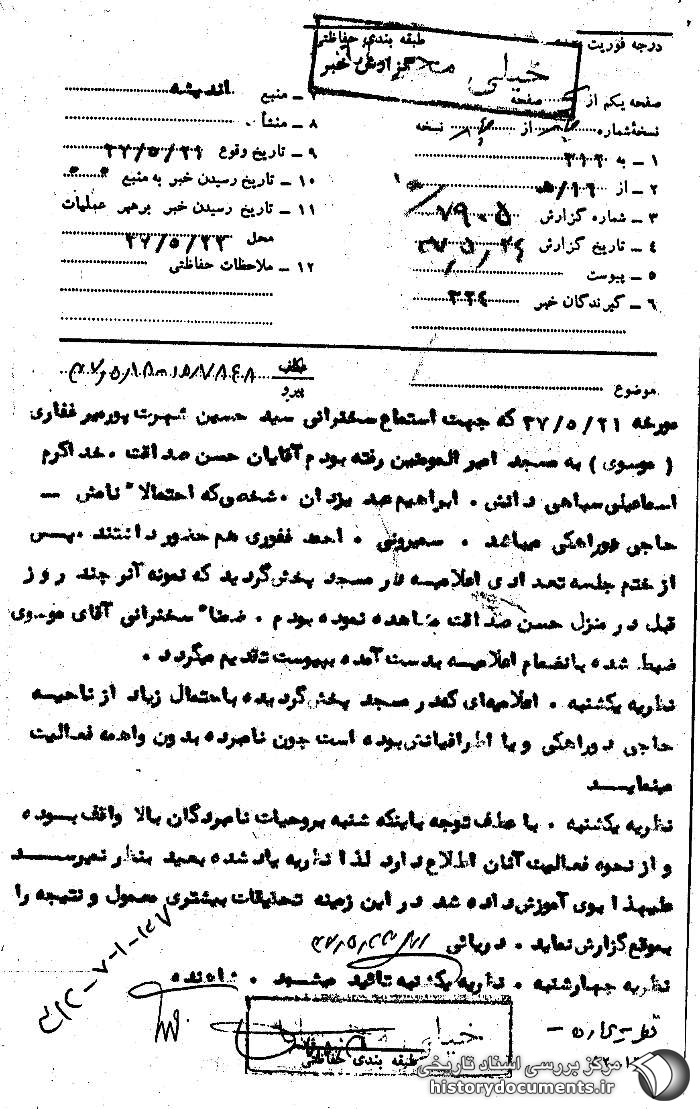 درجه فوریت
طبقه بندی حفاظتی
خیلی محرمانه
گزارش خبر
صفحه یکم از صفحه
نسخه شماره از نسخه
۱ – به ۳۱۲
۲ – از ۱۶/ﻫ
۳ – شماره گزارش ۷۹۰۵
۴ – تاریخ گزارش
۵ – پیوست
۶ – گیرندگان خبر ۳۳۴
۷ – منبع اندیشه
۸ – منشأ
۹ – تاریخ وقوع ۳۷/۵/۲۱
۱۰ – تاریخ رسیدن خبر به منبع " "
۱۱ – تاریخ رسیدن خبر برهبر عملیات
محل ۳۷/۵/۲۳
۱۲ – ملاحظات حفاظتی
موضوع
پیرو
مورخه ۳۷/۵/۲۱ که جهت استماع سخنرانی سید حسین شهرت پورمیر غفاری
( موسوی ) به مسجد امیر المومنین رفته بودم آقایان حسن صداقت ، خداکرم
اسماعیلی سپاهی دانش ، ابراهیم صد یزدان ، شخصی که احتمالا" نامش –
حاجی دوراهکی میباشد ، احمد غفوری هم حضور داشتند ، پس
از ختم جلسه تعدادی اعلامیه در مسجد پخش گردید که نمونه آنرا چند روز
قبل در منزل حسن صداقت مشاهده نموده بودم ، ضمنا" سخنرانی آقای موسوی
ضبط شده بانضمام اعلامیه بدست آمده بپیوست تقدیم میگردد .
نظریه یکشنبه . اعلامیه‌ای که در مسجد پخش گردیده باحتمال زیاد از ناحیه
حاجی دوراهکی و یا اطرافیانش بوده است چون نامبرده بدون واهمه فعالیت
مینماید
نظریه یکشنبه . با عطف توجه باینکه شنبه بروحیات نامبردگان بالا واقف بوده
و از نحوه فعالیت آنان اطلاع دارد لذا نظریه یاد شده بعید بنظر نمیرسد
علیهذا بوی آموزش داده شد در این زمینه تحقیقات بیشتری معمول و نتیجه را
بموقع گزارش نماید . دریائی
نظریه چهارشنبه . نظریه یکشنبه تائید میشود .
خیلی
طبقه بندی حفاظتی
مرکز بررسی اسناد تاریخی
historydocuments.ir